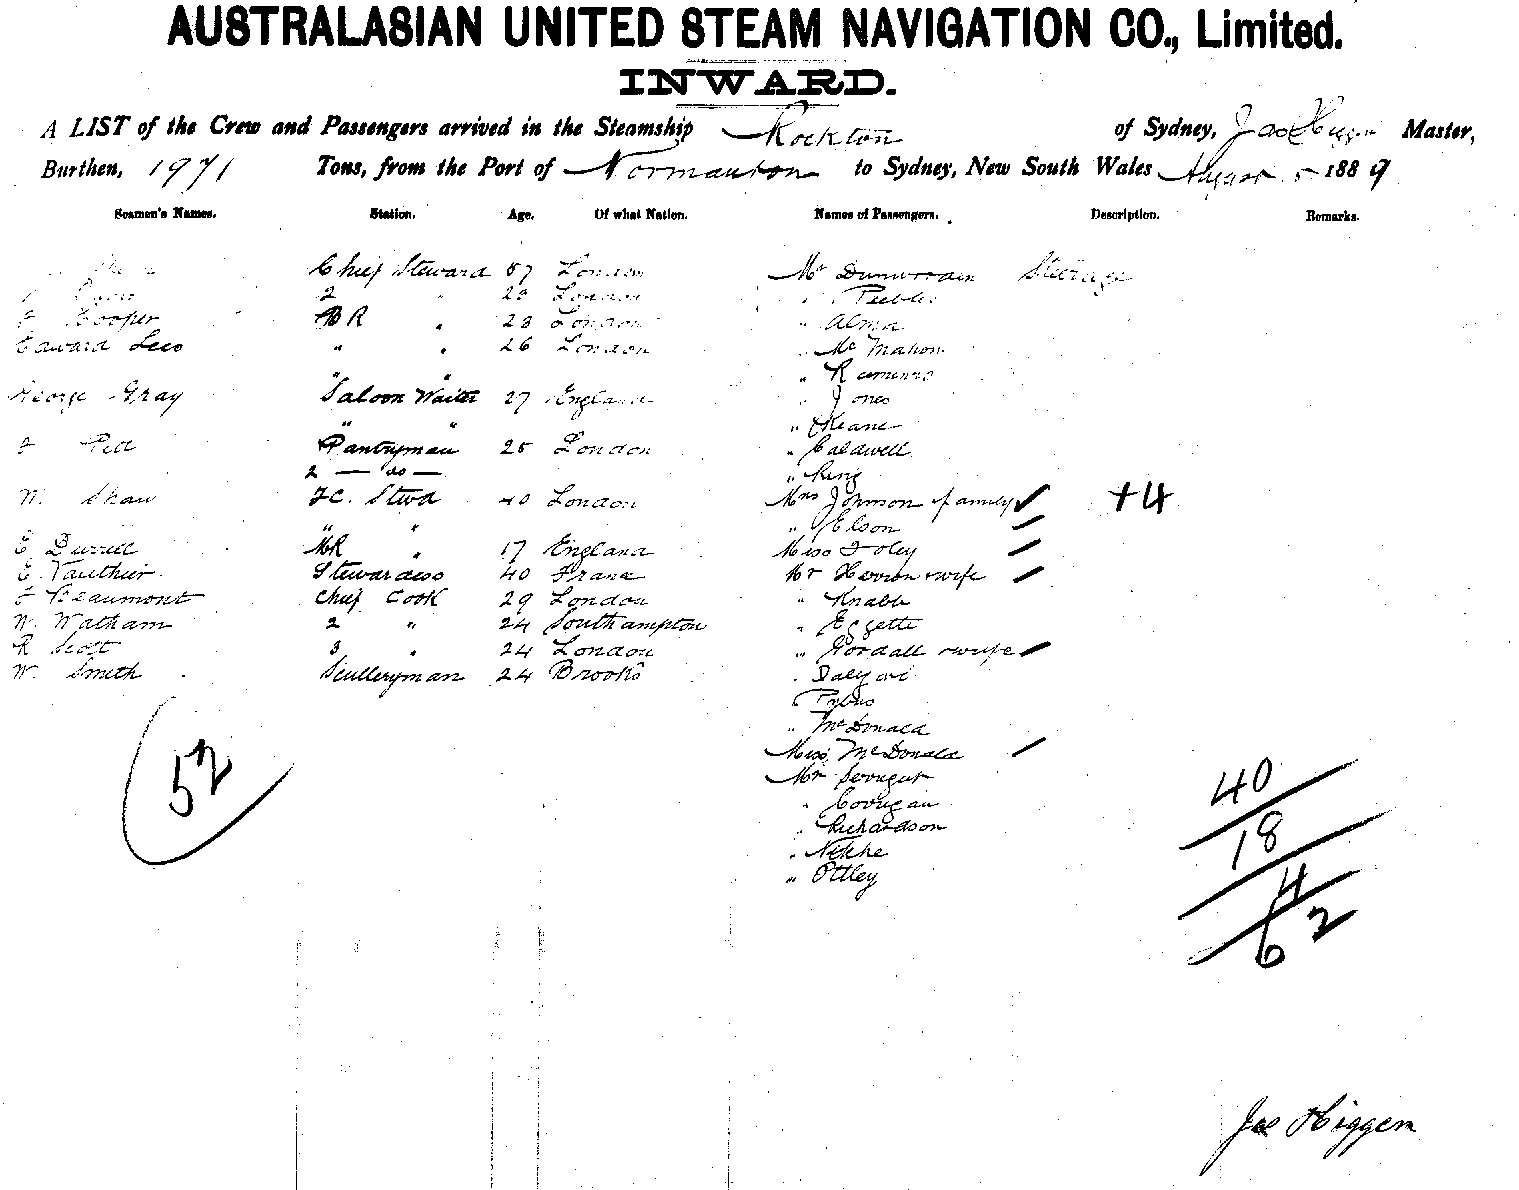 AUSTRALASIAN UNITED STEAM NAVIGATION CO., Limited.
INWARD.
A LIST of the Crew and Passengers arrived in the Steamship Rockton of Sydney, Jas Higgen Master,
Burthen, 1971 Tons, from the Port of Normanton to Sydney, New South Wales August 5 1889
Seamen's Names. Station. Age. Of what Nation. Names of Passengers. Description. Remarks.
Chief Steward 57 London Mr Steerage
2 " 23 London " Peebles
Hooper BR " 23 London " Alma
Edward Lees " " 26 London " McMahon
" "
George Gray Saloon Waiter 27 England " Jones
" " " Keane
Pantryman 25 London " Caldwell
2 — do — " King
W. Shaw FC. Stwd 40 London Mrs Johnson & family +4
" " " Elson
E Durrell MR " 17 England Miss Foley
E Vauthier Stewardess 40 France Mr Herron & wife
Beaumont Chief Cook 29 London " Knabb
W. Watham 2 " 24 Southampton " Eggette
R Scott 3 " 24 London " Gordall & wife
W. Smith Sculleryman 24 Brooks
" McDonald
52 Miss McDonald
Mr
" Corrigan
" Richardson
"
" Ottley
40
18
4
62
Jas Higgen